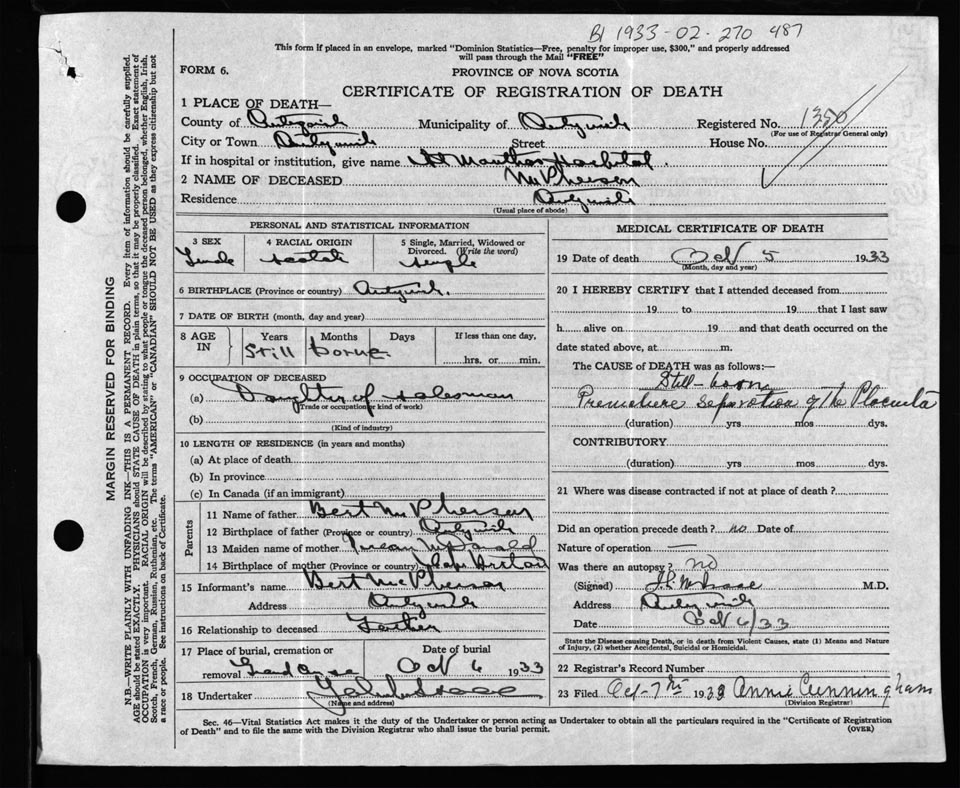 B1 1933-02-270 487
This form if placed in an envelope, marked "Dominion Statistics—Free, penalty for improper use, $300," and properly addressed
will pass through the Mail "FREE"
FORM 6.
PROVINCE OF NOVA SCOTIA
CERTIFICATE OF REGISTRATION OF DEATH
MARGIN RESERVED FOR BINDING
N.B.—WRITE PLAINLY WITH UNFADING INK—THIS IS A PERMANENT RECORD. Every item of information should be carefully supplied.
AGE should be stated EXACTLY. PHYSICIANS should STATE CAUSE OF DEATH in plain terms, so that it may be properly classified. Exact statement of
OCCUPATION is very important. RACIAL ORIGIN will be described by stating to what people or tongue the deceased person belonged, whether English, Irish,
Scotch, French, German, Russian, Ruthenian, etc. The terms "AMERICAN" or "CANADIAN" SHOULD NOT BE USED as they express citizenship but not
a race or people. See instructions on back of Certificate.
1 PLACE OF DEATH—
County of Antigonish Municipality of Antigonish Registered No. 1350
(For use of Registrar General only)
City or Town Antigonish Street House No.
If in hospital or institution, give name St Marthas Hospital
2 NAME OF DECEASED McPherson
Residence Antigonish
(Usual place of abode)
PERSONAL AND STATISTICAL INFORMATION
3 SEX 4 RACIAL ORIGIN 5 Single, Married, Widowed or
Divorced. (Write the word)
Female Scotch Single
6 BIRTHPLACE (Province or country) Antigonish
7 DATE OF BIRTH (month, day and year)
8 AGE IN Years Months Days If less than one day,
Still borne hrs. or min.
9 OCCUPATION OF DECEASED
(a) Daughter of salesman
(Trade or occupation or kind of work)
(b)
(Kind of industry)
10 LENGTH OF RESIDENCE (in years and months)
(a) At place of death
(b) In province
(c) In Canada (if an immigrant)
Parents
11 Name of father Bert McPherson
12 Birthplace of father (Province or country) Antigonish
13 Maiden name of mother McDonald
14 Birthplace of mother (Province or country) Cape Breton
15 Informant's name Bert McPherson
Address Antigonish
16 Relationship to deceased Father
17 Place of burial, cremation or Date of burial
removal Oct 6 1933
18 Undertaker
(Name and address)
MEDICAL CERTIFICATE OF DEATH
19 Date of death Oct 5 1933
(Month, day and year)
20 I HEREBY CERTIFY that I attended deceased from
19 to 19 that I last saw
h alive on 19 and that death occurred on the
date stated above, at m.
The CAUSE of DEATH was as follows:—
Still-born
Premature separation of the Placenta
(duration) yrs mos dys.
CONTRIBUTORY
(duration) yrs mos dys.
21 Where was disease contracted if not at place of death?
Did an operation precede death? no Date of
Nature of operation —
Was there an autopsy? no
(Signed) M.D.
Address Antigonish
Date Oct 6/33
State the Disease causing Death, or in death from Violent Causes, state (1) Means and Nature
of Injury, (2) whether Accidental, Suicidal or Homicidal.
22 Registrar's Record Number
23 Filed Oct-7th 1933 Annie Cunningham
(Division Registrar)
Sec. 46—Vital Statistics Act makes it the duty of the Undertaker or person acting as Undertaker to obtain all the particulars required in the "Certificate of Registration
of Death" and to file the same with the Division Registrar who shall issue the burial permit. (OVER)